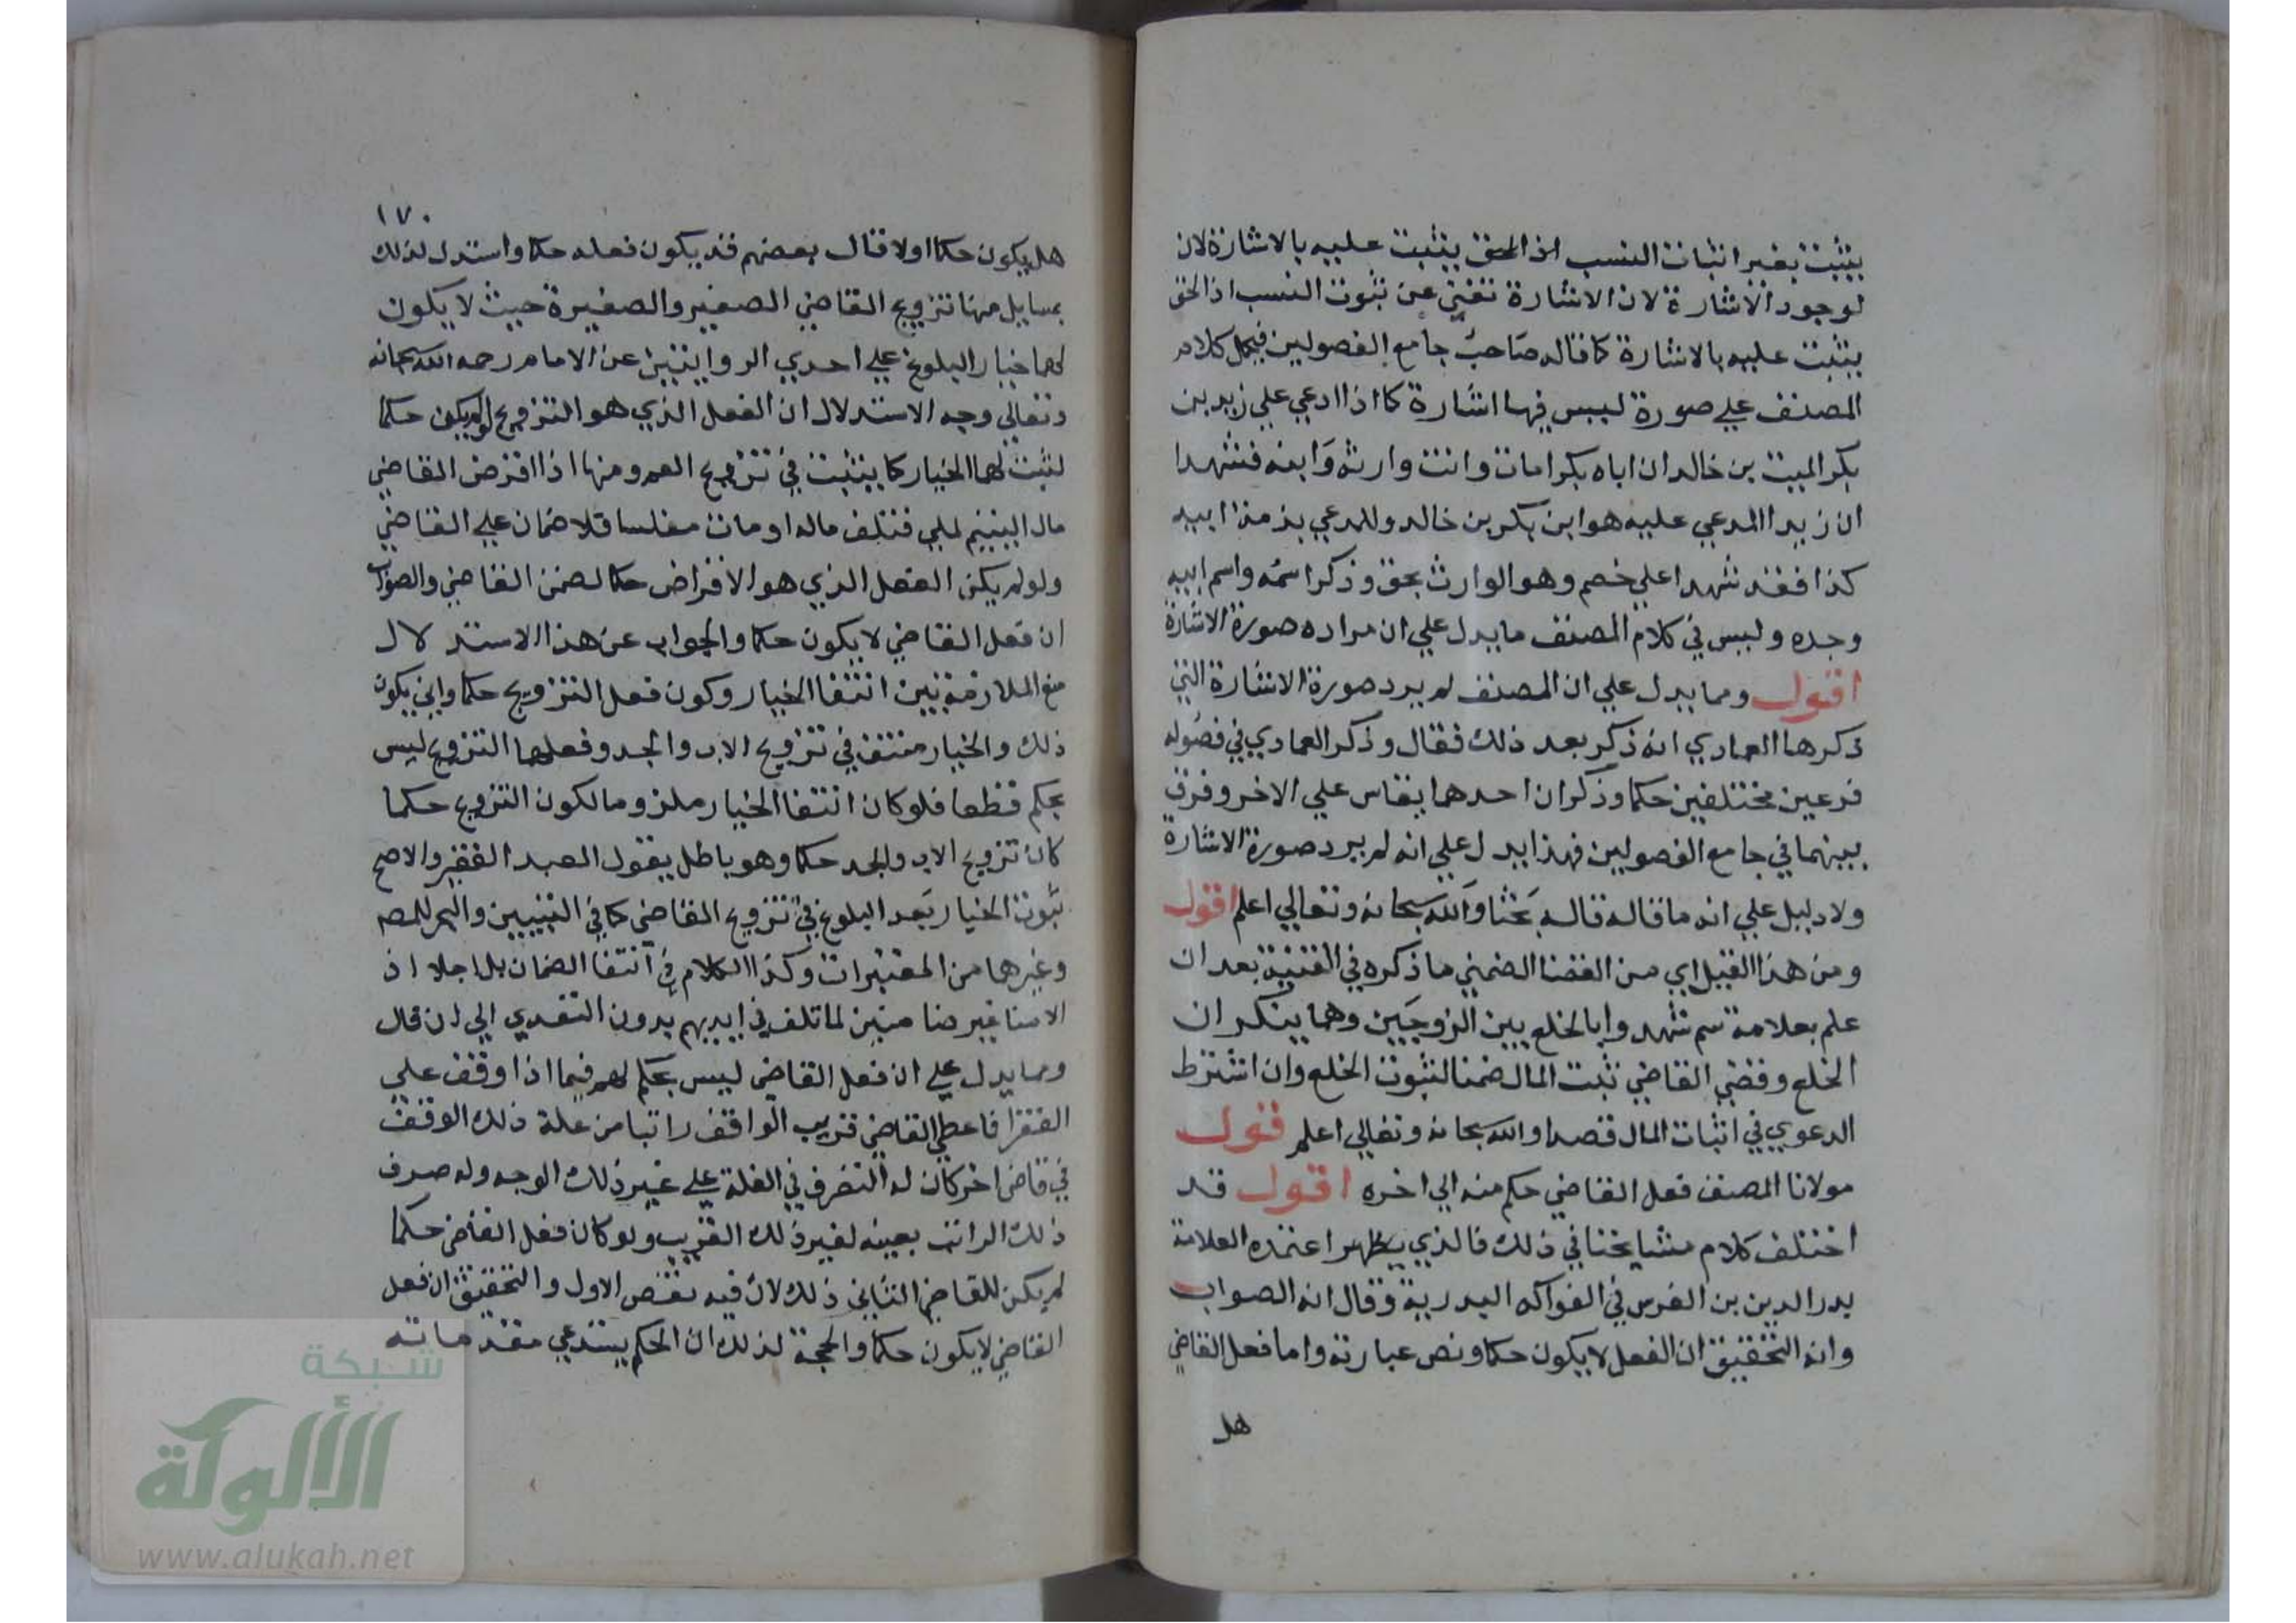 يثبت بغير اثبات النسب اذ الحق يثبت عليه بالاشارة لان
لوجود الاشارة لان الاشارة تغني عن ثبوت النسب اذ الحق
يثبت عليه بالاشارة كما قاله صاحب جامع الفصولين فيحمل كلام
المصنف علي صورة ليس فيها اشارة كما اذا ادعي علي زيد بن
بكر الميت بن خالد ان اباه بكرا مات وانت وارثه وابنه فشهدا
ان زيدا المدعي عليه هو ابن بكر بن خالد وللمدعي بذمة ابيه
كذا فقد شهدا علي خصم وهو الوارث بحق وذكرا اسمه واسم ابيه
وجده وليس في كلام المصنف ما يدل علي ان مراده صورة الاشارة
اقول ومما يدل علي ان المصنف لم يرد صورة الاشارة التي
ذكرها العمادي انه ذكر بعد ذلك فقال وذكر العمادي في فصوله
فرعين مختلفين حكما وذكر ان احدهما يقاس علي الاخر وفرق
بينهما في جامع الفصولين فهذا يدل علي انه لم يرد صورة الاشارة
ولا دليل علي انه ما قاله قاله بحثا والله سبحانه وتعالي اعلم اقول
ومن هذا القبيل اي من القضا الضمني ما ذكره في القنية بعد ان
علم بعلامة سم شهدوا بالخلع بين الزوجين وهما ينكران
الخلع وقضي القاضي ثبت المال ضمنا لثبوت الخلع وان اشترط
الدعوي في اثبات المال قصدا والله سبحانه وتعالي اعلم قول
مولانا المصنف فعل القاضي حكم منه الي اخره اقول قد
اختلف كلام مشايخنا في ذلك فالذي يظهر اعتمده العلامة
بدر الدين بن الغرس في الفواكه البدرية وقال انه الصواب
وانه التحقيق ان الفعل لا يكون حكما ونص عبارته واما فعل القاضي
هل
١٧٠
هل يكون حكما اولا قال بعضهم قد يكون فعله حكما واستدل لذلك
بمسايل منها تزويج القاضي الصغير والصغيرة حيث لا يكون
لهما خيار البلوغ علي احدي الروايتين عن الامام رحمه الله سبحانه
وتعالي وجه الاستدلال ان الفعل الذي هو التزويج لو لم يكن حكما
لثبت لهما الخيار كما يثبت في تزويج العم ومنها اذا اقرض القاضي
مال اليتيم لملي فتلف ماله او مات مفلسا فلا ضمان علي القاضي
ولو لم يكن الفعل الذي هو الاقراض حكما لضمن القاضي والصواب
ان فعل القاضي لا يكون حكما والجواب عن هذا الاستدلال
منع الملازمة بين انتفا الخيار وكون فعل التزويج حكما واني يكون
ذلك والخيار منتف في تزويج الاب والجد وفعلهما التزويج ليس
بحكم قطعا فلو كان انتفا الخيار ملزوما لكون التزويج حكما
كان تزويج الاب والجد حكما وهو باطل يقول العبد الفقير والاصح
ثبوت الخيار بعد البلوغ في تزويج القاضي كما في التبيين والبحر للمص
وغيرها من المعتبرات وكذا الكلام في انتفا الضمان بل اجلا اذ
الامنا غير ضامنين لما تلف في ايديهم بدون التعدي الي ان قال
ومما يدل علي ان فعل القاضي ليس بحكم لهم فيما اذا وقف علي
الفقرا فاعطي القاضي قريب الواقف راتبا من غلة ذلك الوقف
في قاض اخر كان له التصرف في الغلة علي غير ذلك الوجه وله صرف
ذلك الراتب بعينه لغير ذلك القريب ولو كان فعل القاضي حكما
لم يكن للقاضي الثاني ذلك لان فيه نقض الاول والتحقيق ان فعل
القاضي لا يكون حكما والحجة لذلك ان الحكم يستدعي مقدماته
شبكة
الألوكة
www.alukah.net